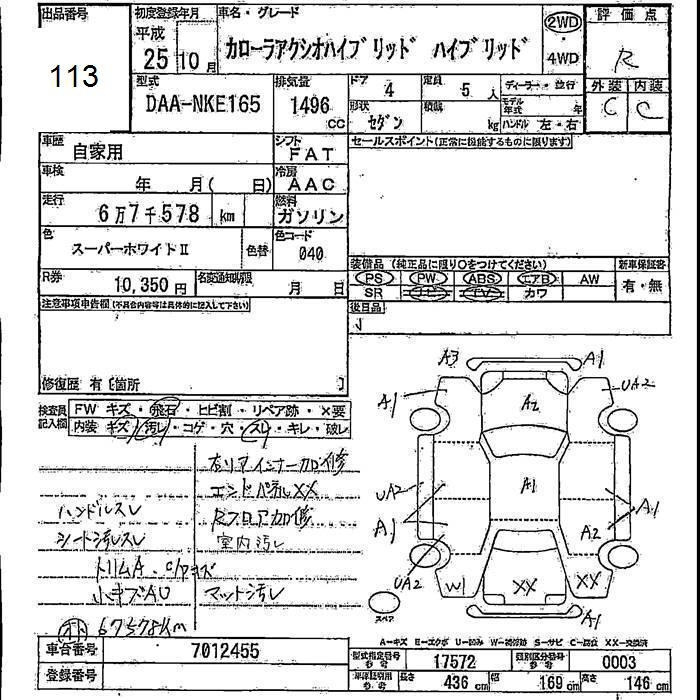 出品番号 初度登録年月 車名・グレード 評価点
113
平成 25年10月 カローラアクシオハイブリッド ハイブリッド 2WD・4WD R
型式 排気量 ドア 4 定員 5人 ディーラー・並行 外装 内装
DAA-NKE165 1496cc 形状 セダン 積載 kg モデル年式 年 ハンドル 左・右 C C
車歴 自家用 シフト FAT セールスポイント(正常に機能するものに限ります)
車検 年 月( 日) 冷房 AAC
走行 6万7千578 km 燃料 ガソリン
色 スーパーホワイトⅡ 色替 色コード 040
装備品(純正品に限り○をつけてください) 新車保証書
PS PW ABS エアB AW 有・無
SR ナビ TV カワ
R券 10,350円 名変通知期限 月 日
後日品
注意事項申告欄(不具合内容等は具体的に記入して下さい)
修復歴 有〔箇所 〕
検査員記入欄 FW キズ・飛石・ヒビ割・リペア跡・×要
内装 キズ・汚レ・コゲ・穴・スレ・キレ・破レ
右リアインナー加修
エンドパネルXX
ハンドルスレ Rフロア加修
シート汚レスレ 室内汚レ
トリムA
小キズAU マット汚レ
67578km
A3 A1
A1 A2 UA2
UA2 A1 A1
A1 A2
UA2 W1 XX XX
A1
スペア
車台番号 7012455
登録番号
A-キズ E-エクボ U-凹み W-補修跡 S-サビ C-腐食 XX-交換済
型式指定番号 参考 17572 類別区分番号 参考 0003
車検証引用 参考 長さ 436cm 幅 169cm 高さ 146cm